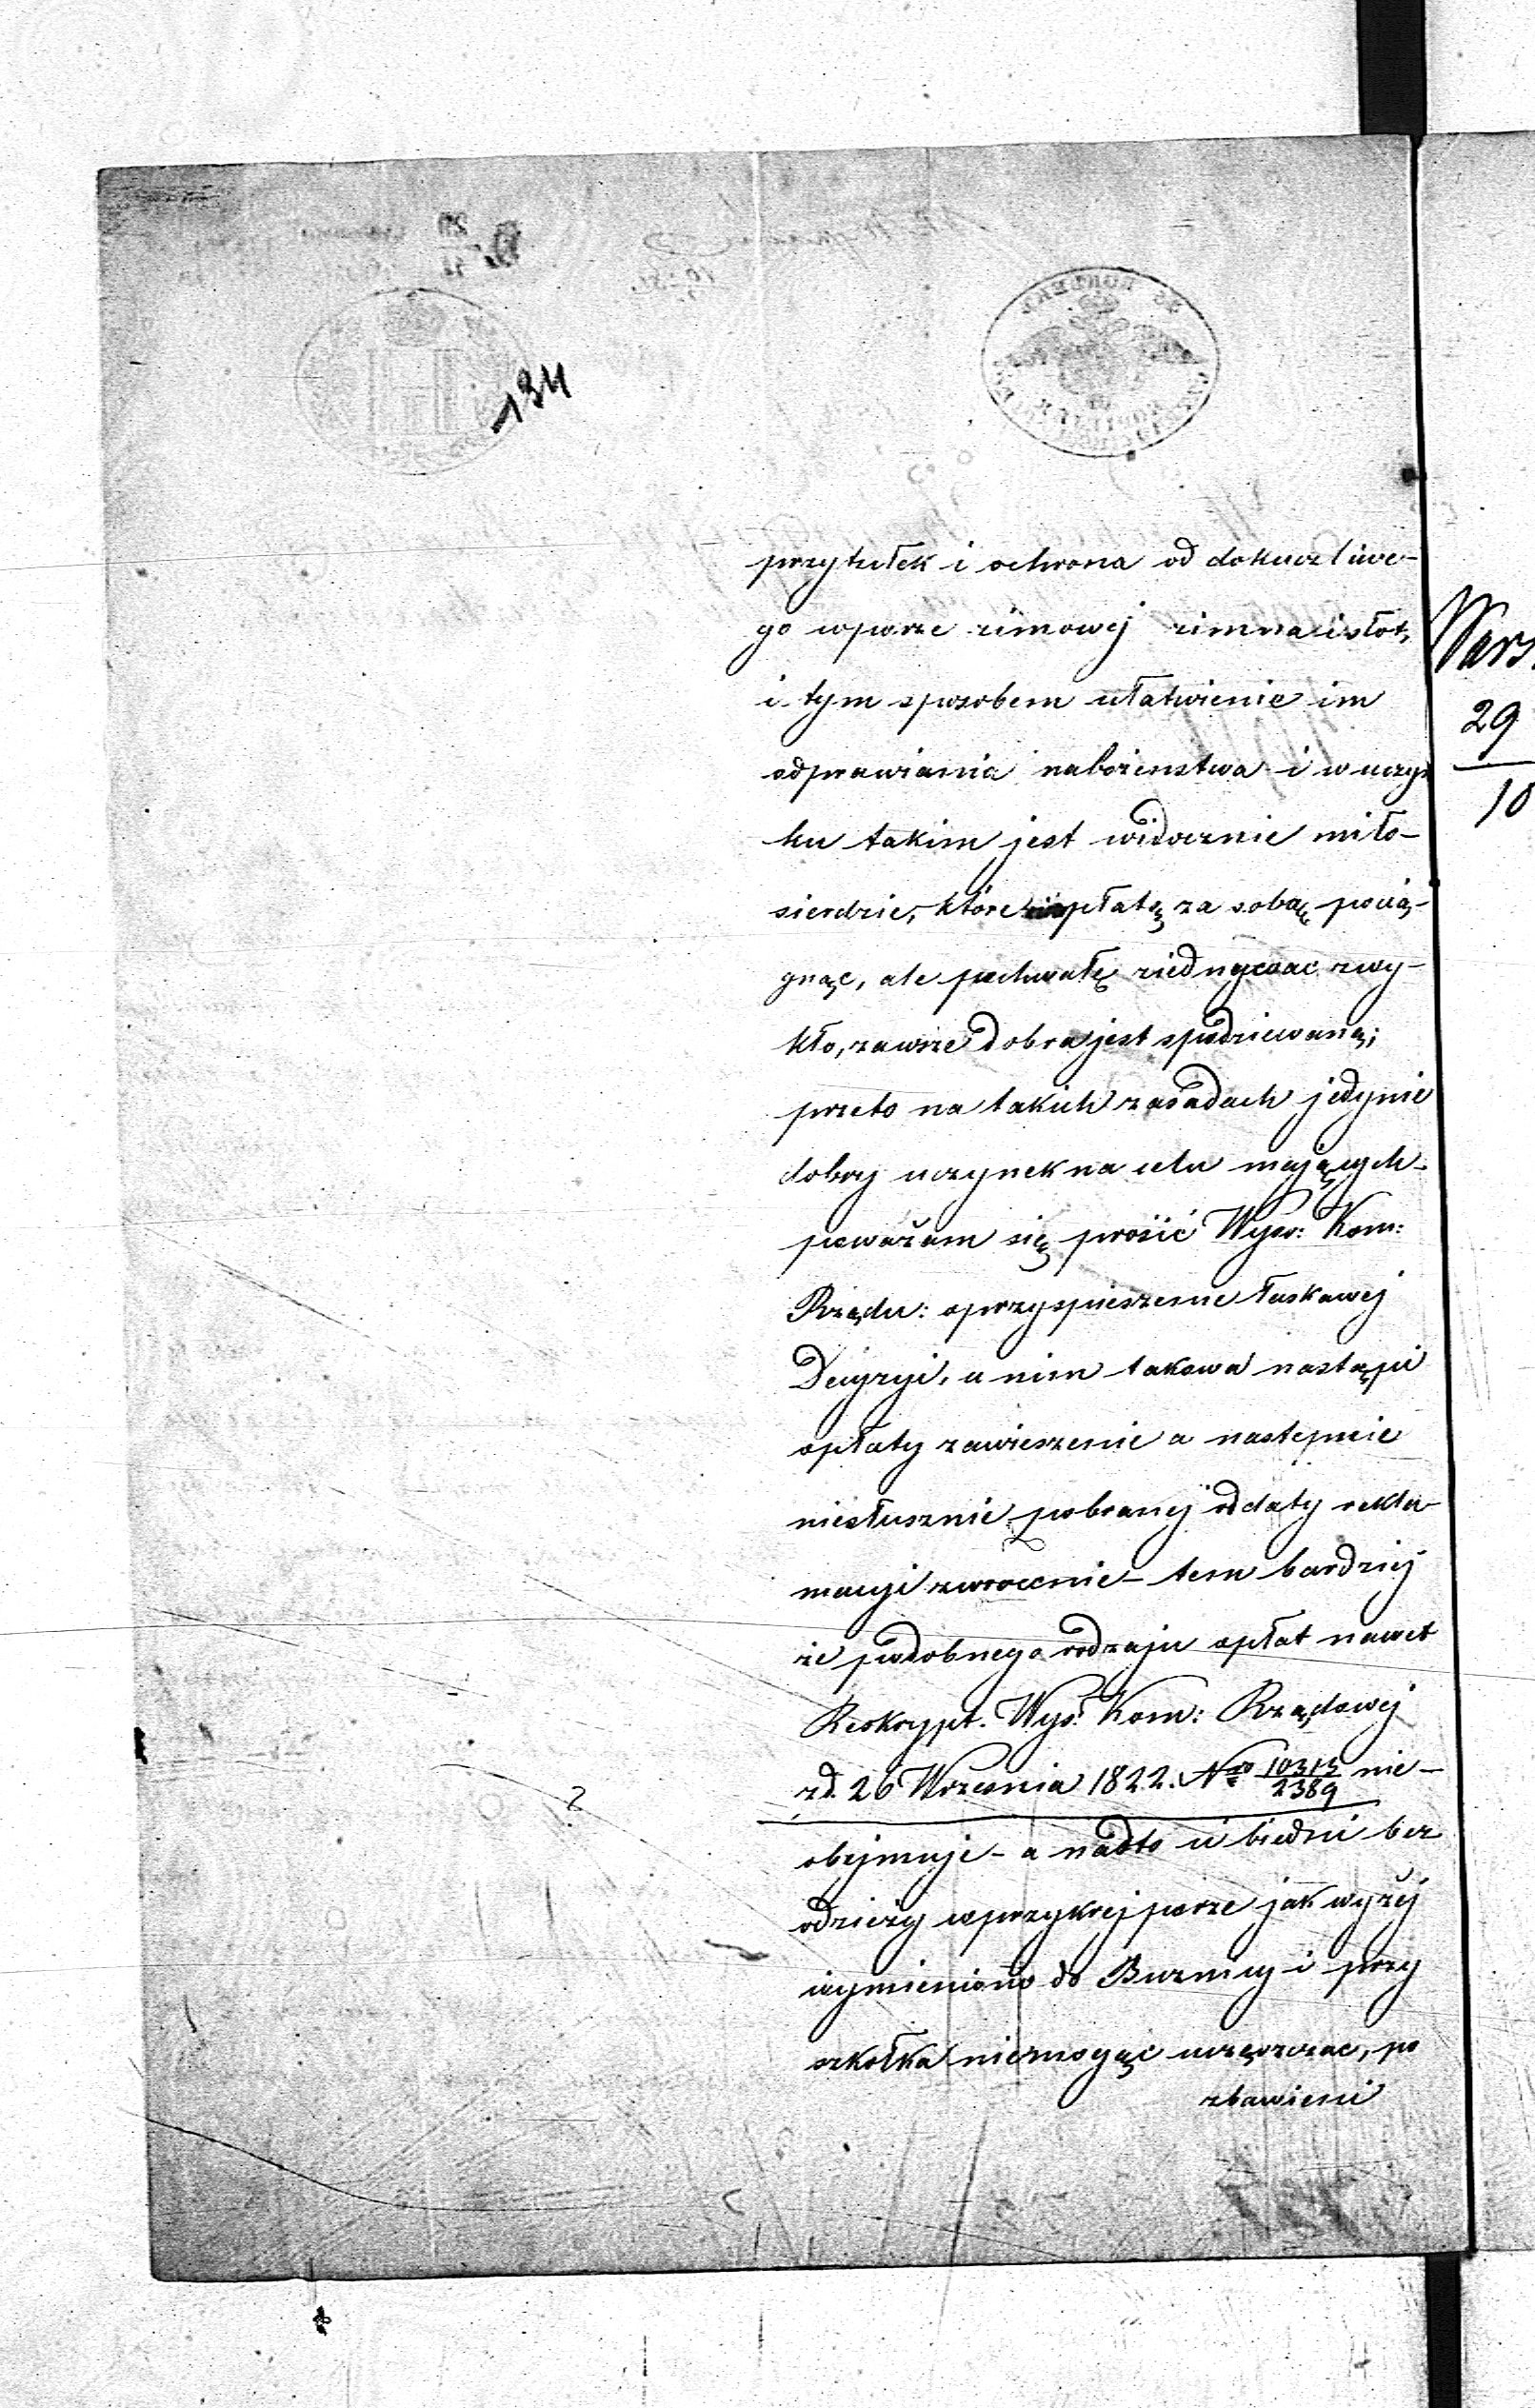 134
przytułek i ochrona od dokuczliwe-
go w porze zimowej zimna i słot,
i tym sposobem ułatwienie im
odprawiania nabożenstwa i w uczyn
ku takim jest widocznie miło-
sierdzie, które opłatę za sobą pocią-
gnąc, ale pochwałę ziednywac zwy-
kło, zawsze dobra jest spodziewaną;
przeto na takich zasadach jedynie
dobry uczynek na celu mających
poważam się prosić Wyso: Kom:
Rządu: o przyspieszenie łaskawej
Decyzyi, a nim takowa nastąpi
opłaty zawieszenie a nastepnie
niesłusznie pobranej od daty rekla-
macyi zwrocenie – tem bardziej
że podobnego rodzaju opłat nawet
Reskrypt. Wys: Kom: Rządowej
z d. 26 Wrzesnia 1822. Nro 10315/2389 nie-
obejmuje – a nadto ci biedni bez
odzieży w przykrej porze jak wyżej
wymieniono do Buznicy i przy
szkołka niemogąc uczęszczac, po
zbawieni
Wars.
29
10